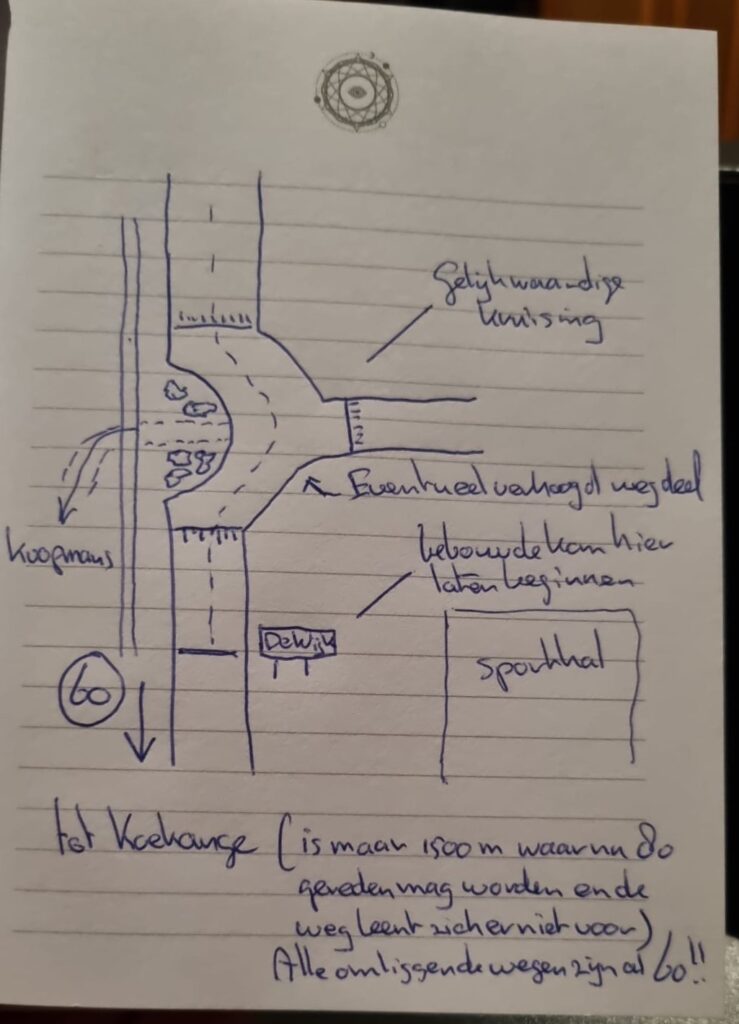 Gelijkwaardige
kruising
Eventueel verhoogd wegdeel
Koopmans
bebouwde kom hier
laten beginnen
De Wijk
sporthal
60
tot Koekange (is maar 1500 m waar nu 80
gereden mag worden en de
weg leent zich er niet voor)
Alle omliggende wegen zijn al 60!!